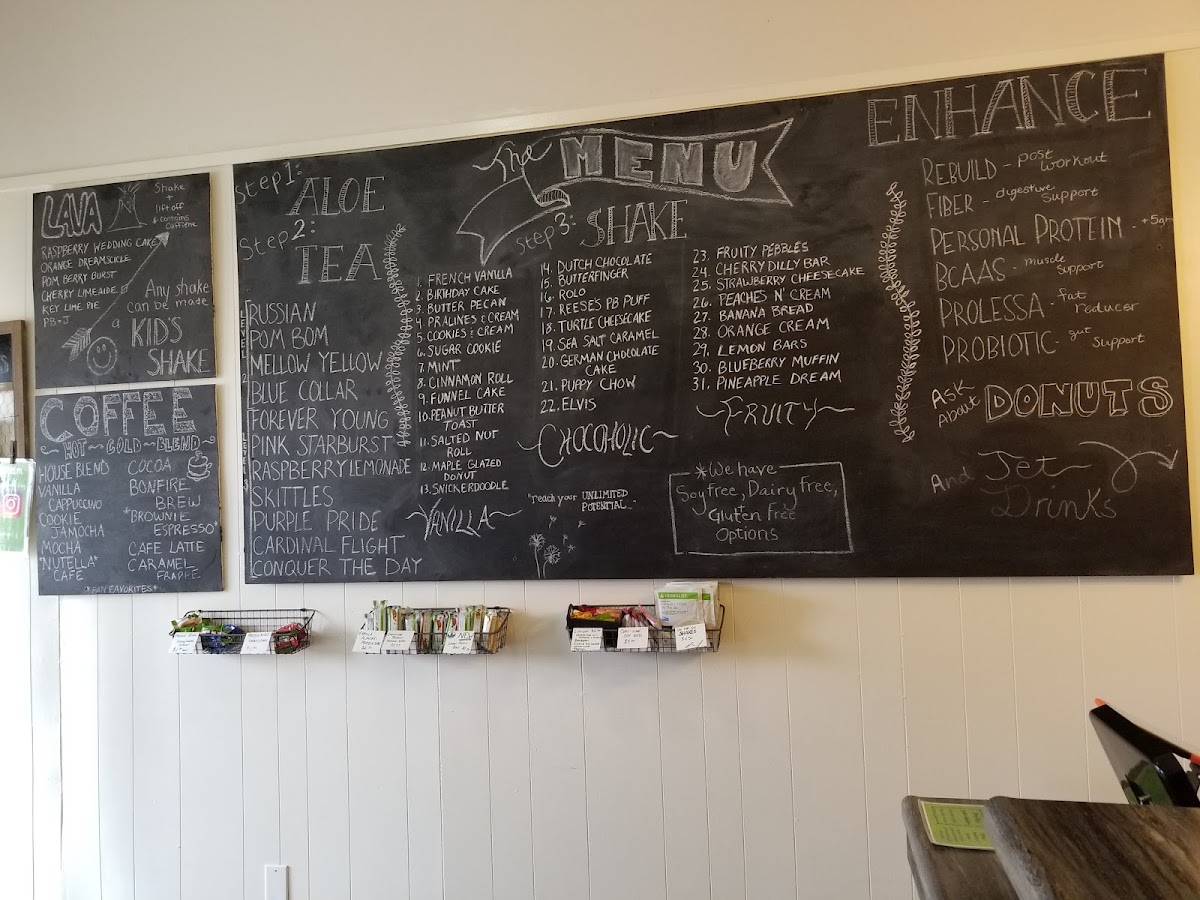 LAVA
Shake
+
lift off
contains
caffeine
RASPBERRY WEDDING CAKE
ORANGE DREAMSICKLE
POM BERRY BURST
CHERRY LIMEAIDE
KEY LIME PIE
PB+J
Any shake
can be made
a
KID'S
SHAKE
COFFEE
HOT COLD BLEND
HOUSE BLEND
VANILLA
CAPPUCCINO
COOKIE
JAMOCHA
MOCHA
*NUTELLA*
CAFE
COCOA
BONFIRE
BREW
*BROWNIE
ESPRESSO*
CAFE LATTE
CARAMEL
FRAPPE
*FAN FAVORITES*
The MENU
Step 1:
ALOE
Step 2:
TEA
LEVEL 2
RUSSIAN
POM BOM
MELLOW YELLOW
BLUE COLLAR
FOREVER YOUNG
LEVEL 3
PINK STARBURST
RASPBERRY LEMONADE
SKITTLES
PURPLE PRIDE
CARDINAL FLIGHT
CONQUER THE DAY
Step 3:
SHAKE
1. FRENCH VANILLA
2. BIRTHDAY CAKE
3. BUTTER PECAN
4. PRALINES & CREAM
5. COOKIES & CREAM
6. SUGAR COOKIE
7. MINT
8. CINNAMON ROLL
9. FUNNEL CAKE
10. PEANUT BUTTER
TOAST
11. SALTED NUT
ROLL
12. MAPLE GLAZED
DONUT
13. SNICKERDOODLE
VANILLA
14. DUTCH CHOCOLATE
15. BUTTERFINGER
16. ROLO
17. REESE'S PB PUFF
18. TURTLE CHEESECAKE
19. SEA SALT CARAMEL
20. GERMAN CHOCOLATE
CAKE
21. PUPPY CHOW
22. ELVIS
CHOCOHOLIC
"reach your UNLIMITED
POTENTIAL..."
23. FRUITY PEBBLES
24. CHERRY DILLY BAR
25. STRAWBERRY CHEESECAKE
26. PEACHES N' CREAM
27. BANANA BREAD
28. ORANGE CREAM
29. LEMON BARS
30. BLUEBERRY MUFFIN
31. PINEAPPLE DREAM
FRUITY
*We have
Soy free, Dairy Free,
+
Gluten free
Options
ENHANCE
REBUILD - post workout
FIBER - digestive support
PERSONAL PROTEIN - +5g
BCAAS - muscle support
PROLESSA - fat reducer
PROBIOTIC - gut support
Ask About DONUTS
And Jet
Drinks
HERBALIFE